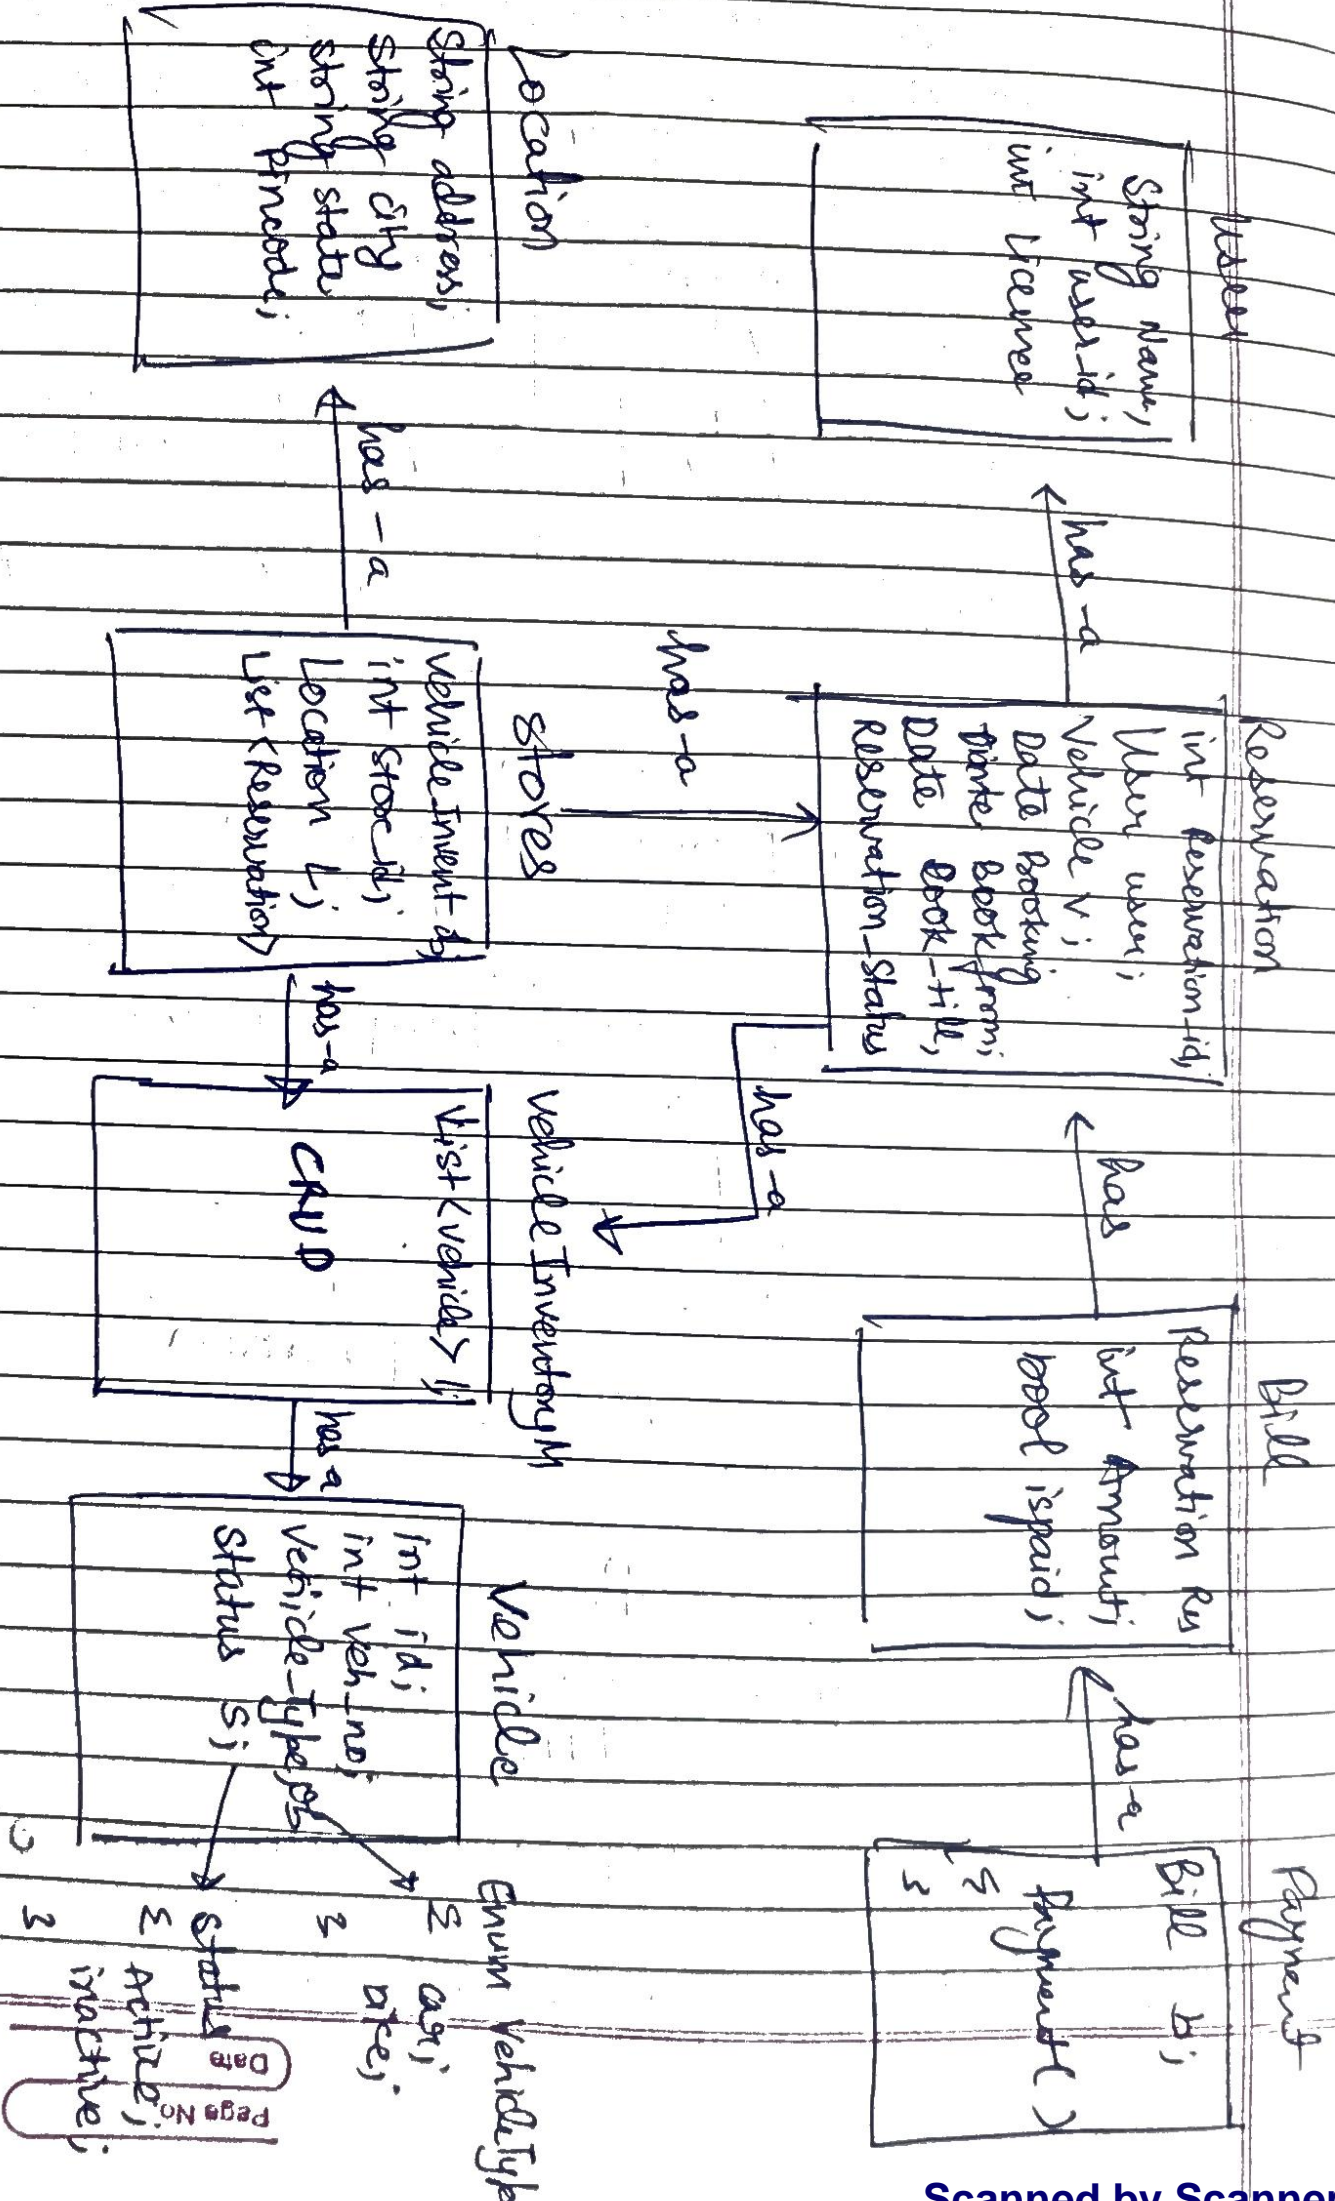 User
String Name,
int user-id;
int licence
has-a
Reservation
int Reservation-id;
User user;
Vehicle v;
Date Booking
Date Book from;
Date Book-till,
Reservation-Status
has
Bill
Reservation Res
int Amount;
bool ispaid;
has-a
Payment
Bill b;
Payment( )
{
}
has-a
has-a
Location
String address;
String city
String state
int pincode;
has-a
Stores
int store id;
Location L;
List<Reservation>
has-a
Vehicle Inventory M
List<Vehicle>
CRUD
has-a
Vehicle
int id;
int veh_no;
Vehicle_Type
Status S;
Enum VehicleType
{ car;
}
Status
{ Active;
inactive;
}
Date
Page No
Scanned by Scanner